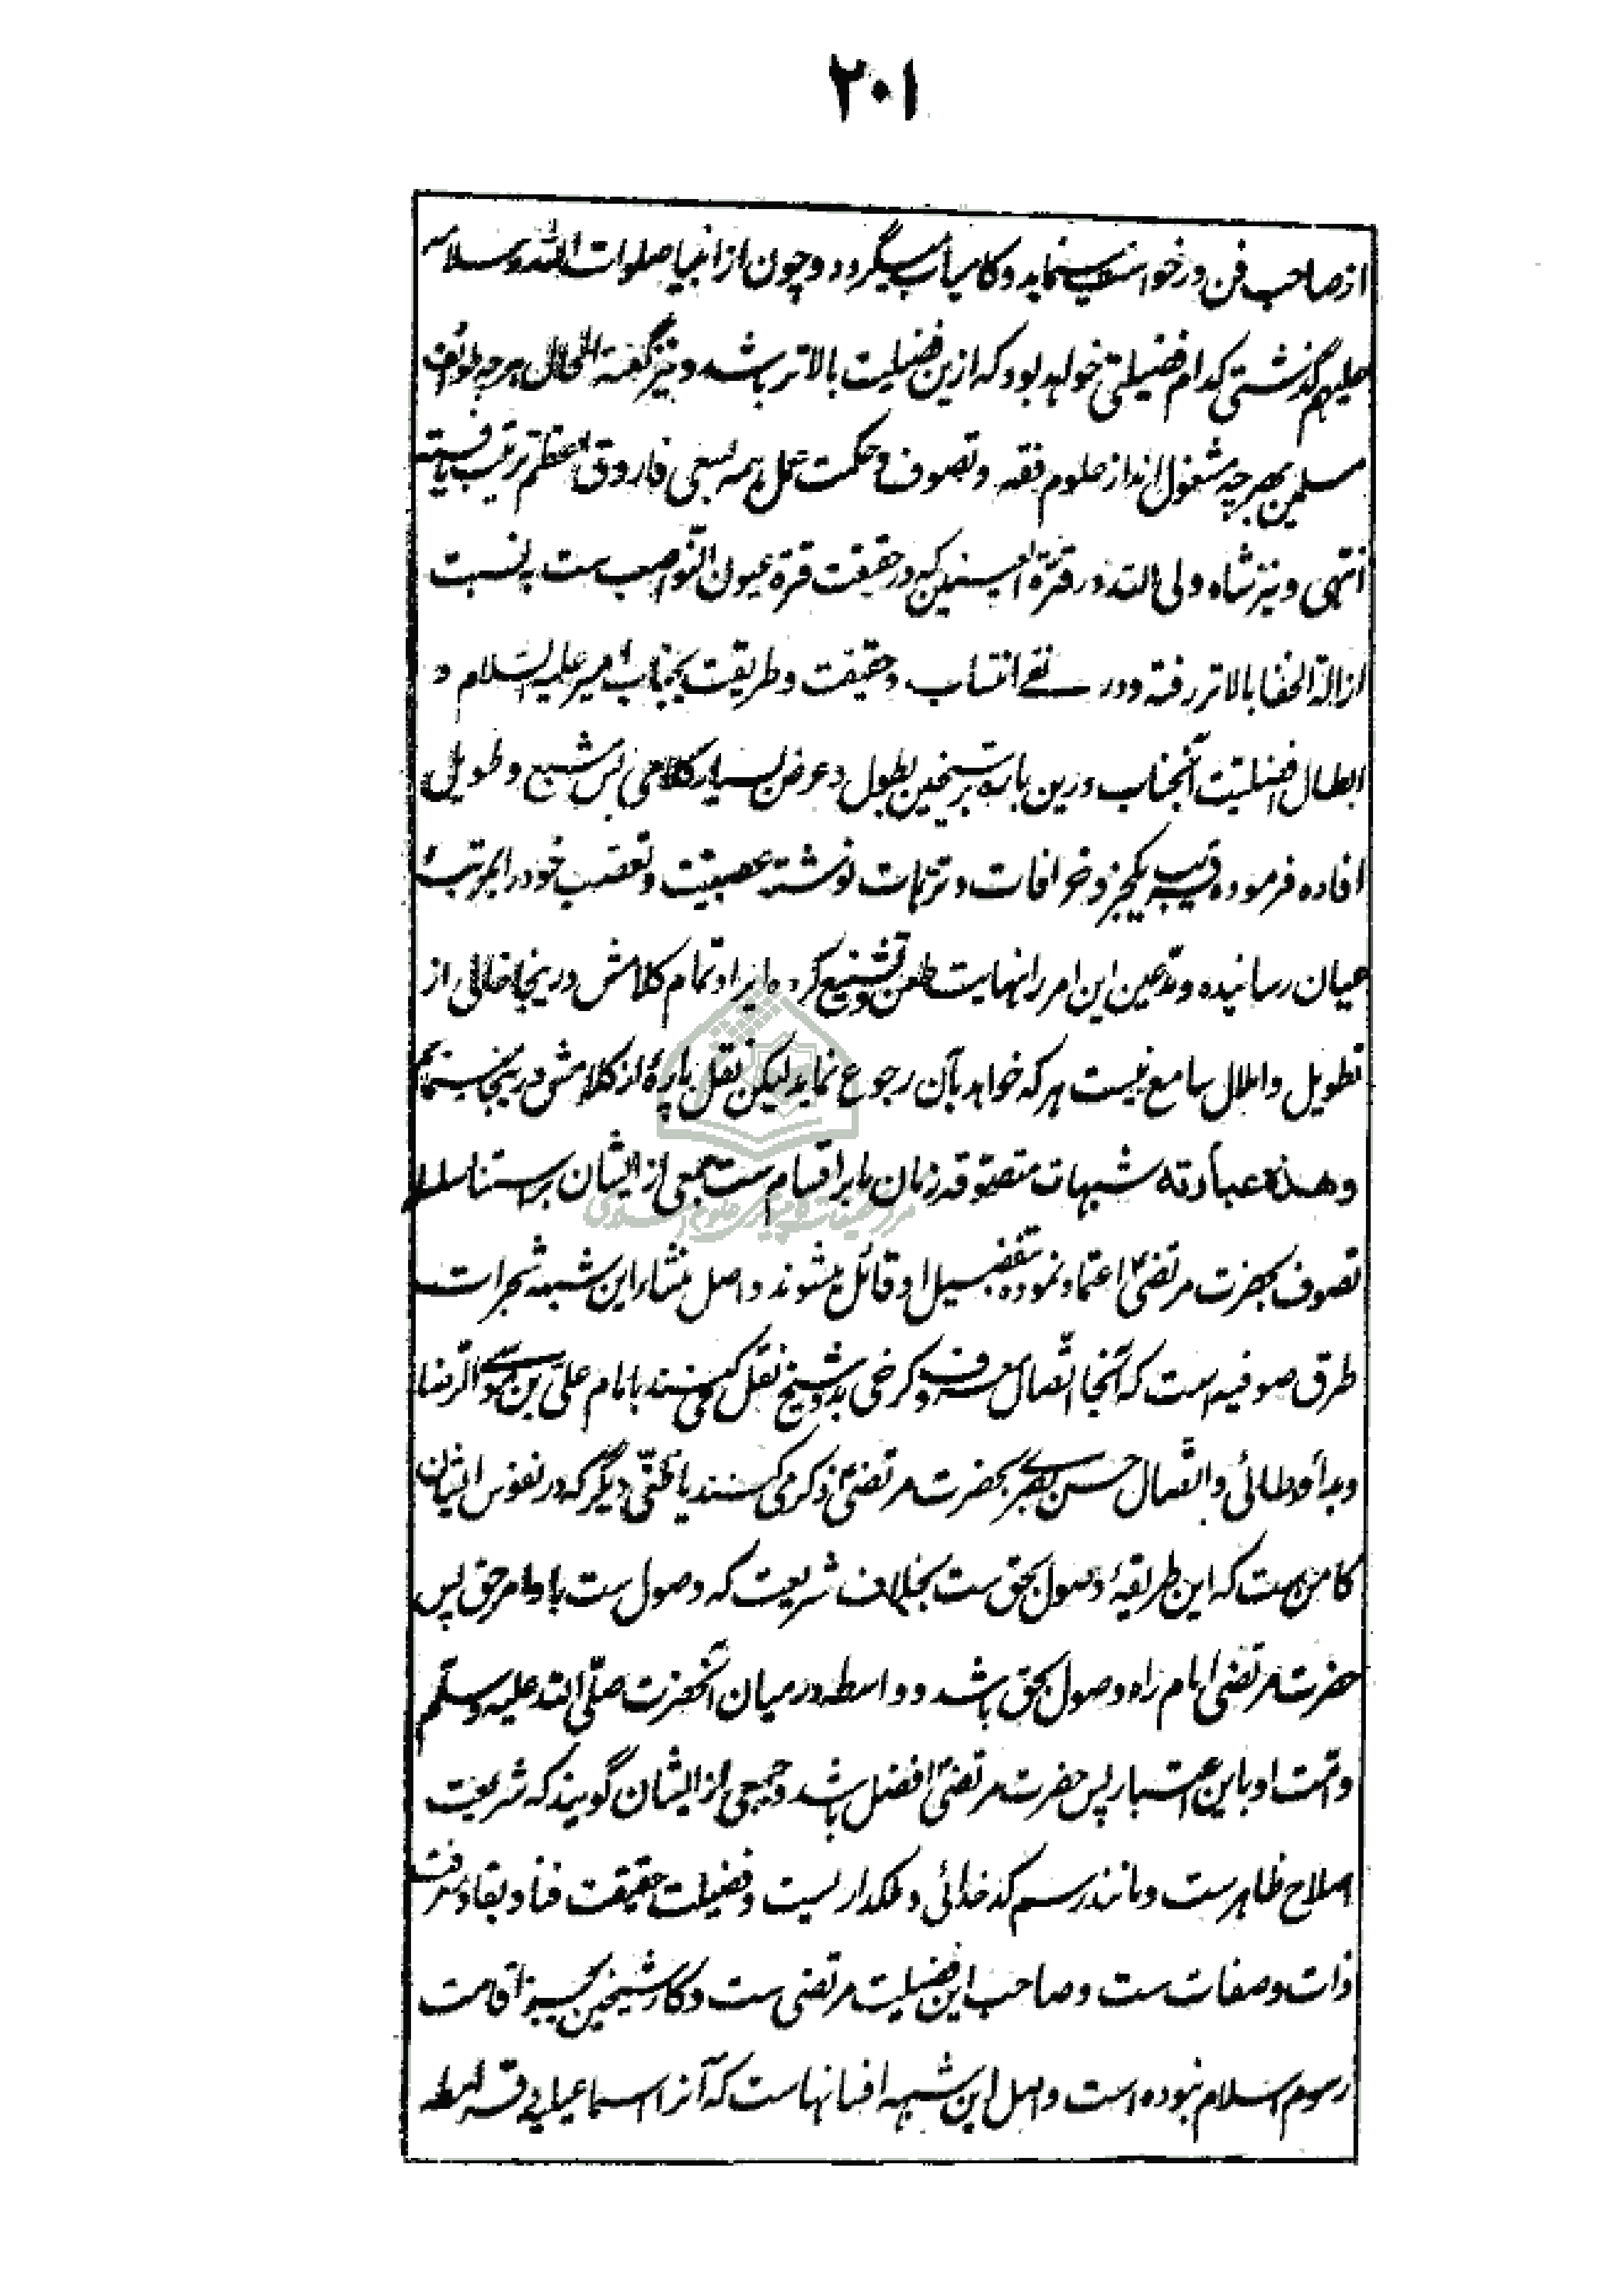 ۲۰۱
از صاحب فن درخواست مینماید و کامیاب میگردد و چون از انبیا صلوات الله و سلامه
علیهم گذشتی کدام فضیلتی خواهد بود که ازین فضیلت بالاتر باشد و نیز گفته الحال هر چه طوائف
مسلمین بهر چه مشغول اند از علوم فقه و تصوف و حکمت عمل همه بسعی فاروق اعظم ترتیب یافته
انتهی و نیز شاه ولی الله در قرة العینین که در حقیقت قرة عیون النواصب ست به نسبت
ازالة الخفا بالاتر رفته و در نفی انتساب حقیقت و طریقت بجناب امیر علیه السلام و
ابطال افضلیت آنجناب درین باره بر شیخین بطول و عرض بسیار کلامی بس شبع و طویل
افاده فرموده قریب یکجزو خرافات و ترهات نوشته عصبیت و تعصب خود را بمرتبهٔ
عیان رسانیده و مدعین این امر را نهایت طعن و تشنیع کرده ایراد تمام کلامش درینجا خالی از
تطویل و املال سامع نیست هر که خواهد بآن رجوع نماید لیکن نقل پارهٔ از کلامش درینجا مینمایم
و هذه عبارته شبهات متصوفه زمان ما بر اقسام ست جمعی از ایشان بر استناد سلسله
تصوف بحضرت مرتضی اعتماد نموده بتفضیل او قائل میشوند و اصل منشاء این شبهه شجرات
طرق صوفیه است که آنجا اتصال معروف کرخی بدو شیخ نقل میکنند با امام علی بن موسی الرضا
و بداؤد طائی و اتصال حسن بصری بحضرت مرتضی ذکر می کنند یا ظنی دیگر که در نفوس ایشان
کامن ست که این طریقهٔ وصول بحق ست بخلاف شریعت که وصول ست با وامر حق پس
حضرت مرتضی امام راه وصول بحق باشد و واسطه در میان آنحضرت صلی الله علیه وسلم
و امت او باین اعتبار پس حضرت مرتضی افضل باشد و جمعی از ایشان گویند که شریعت
اصلاح ظاهر ست و مانند رسم کدخدائی و ملکداریست و فضیلت حقیقت فنا و بقا و معرفت
ذات و صفات ست و صاحب این فضیلت مرتضی ست و کار شیخین بجز اقامت
رسوم اسلام نبوده است و اصل این شبهه افسانهاست که آنرا اسماعیلیه و قرامطه